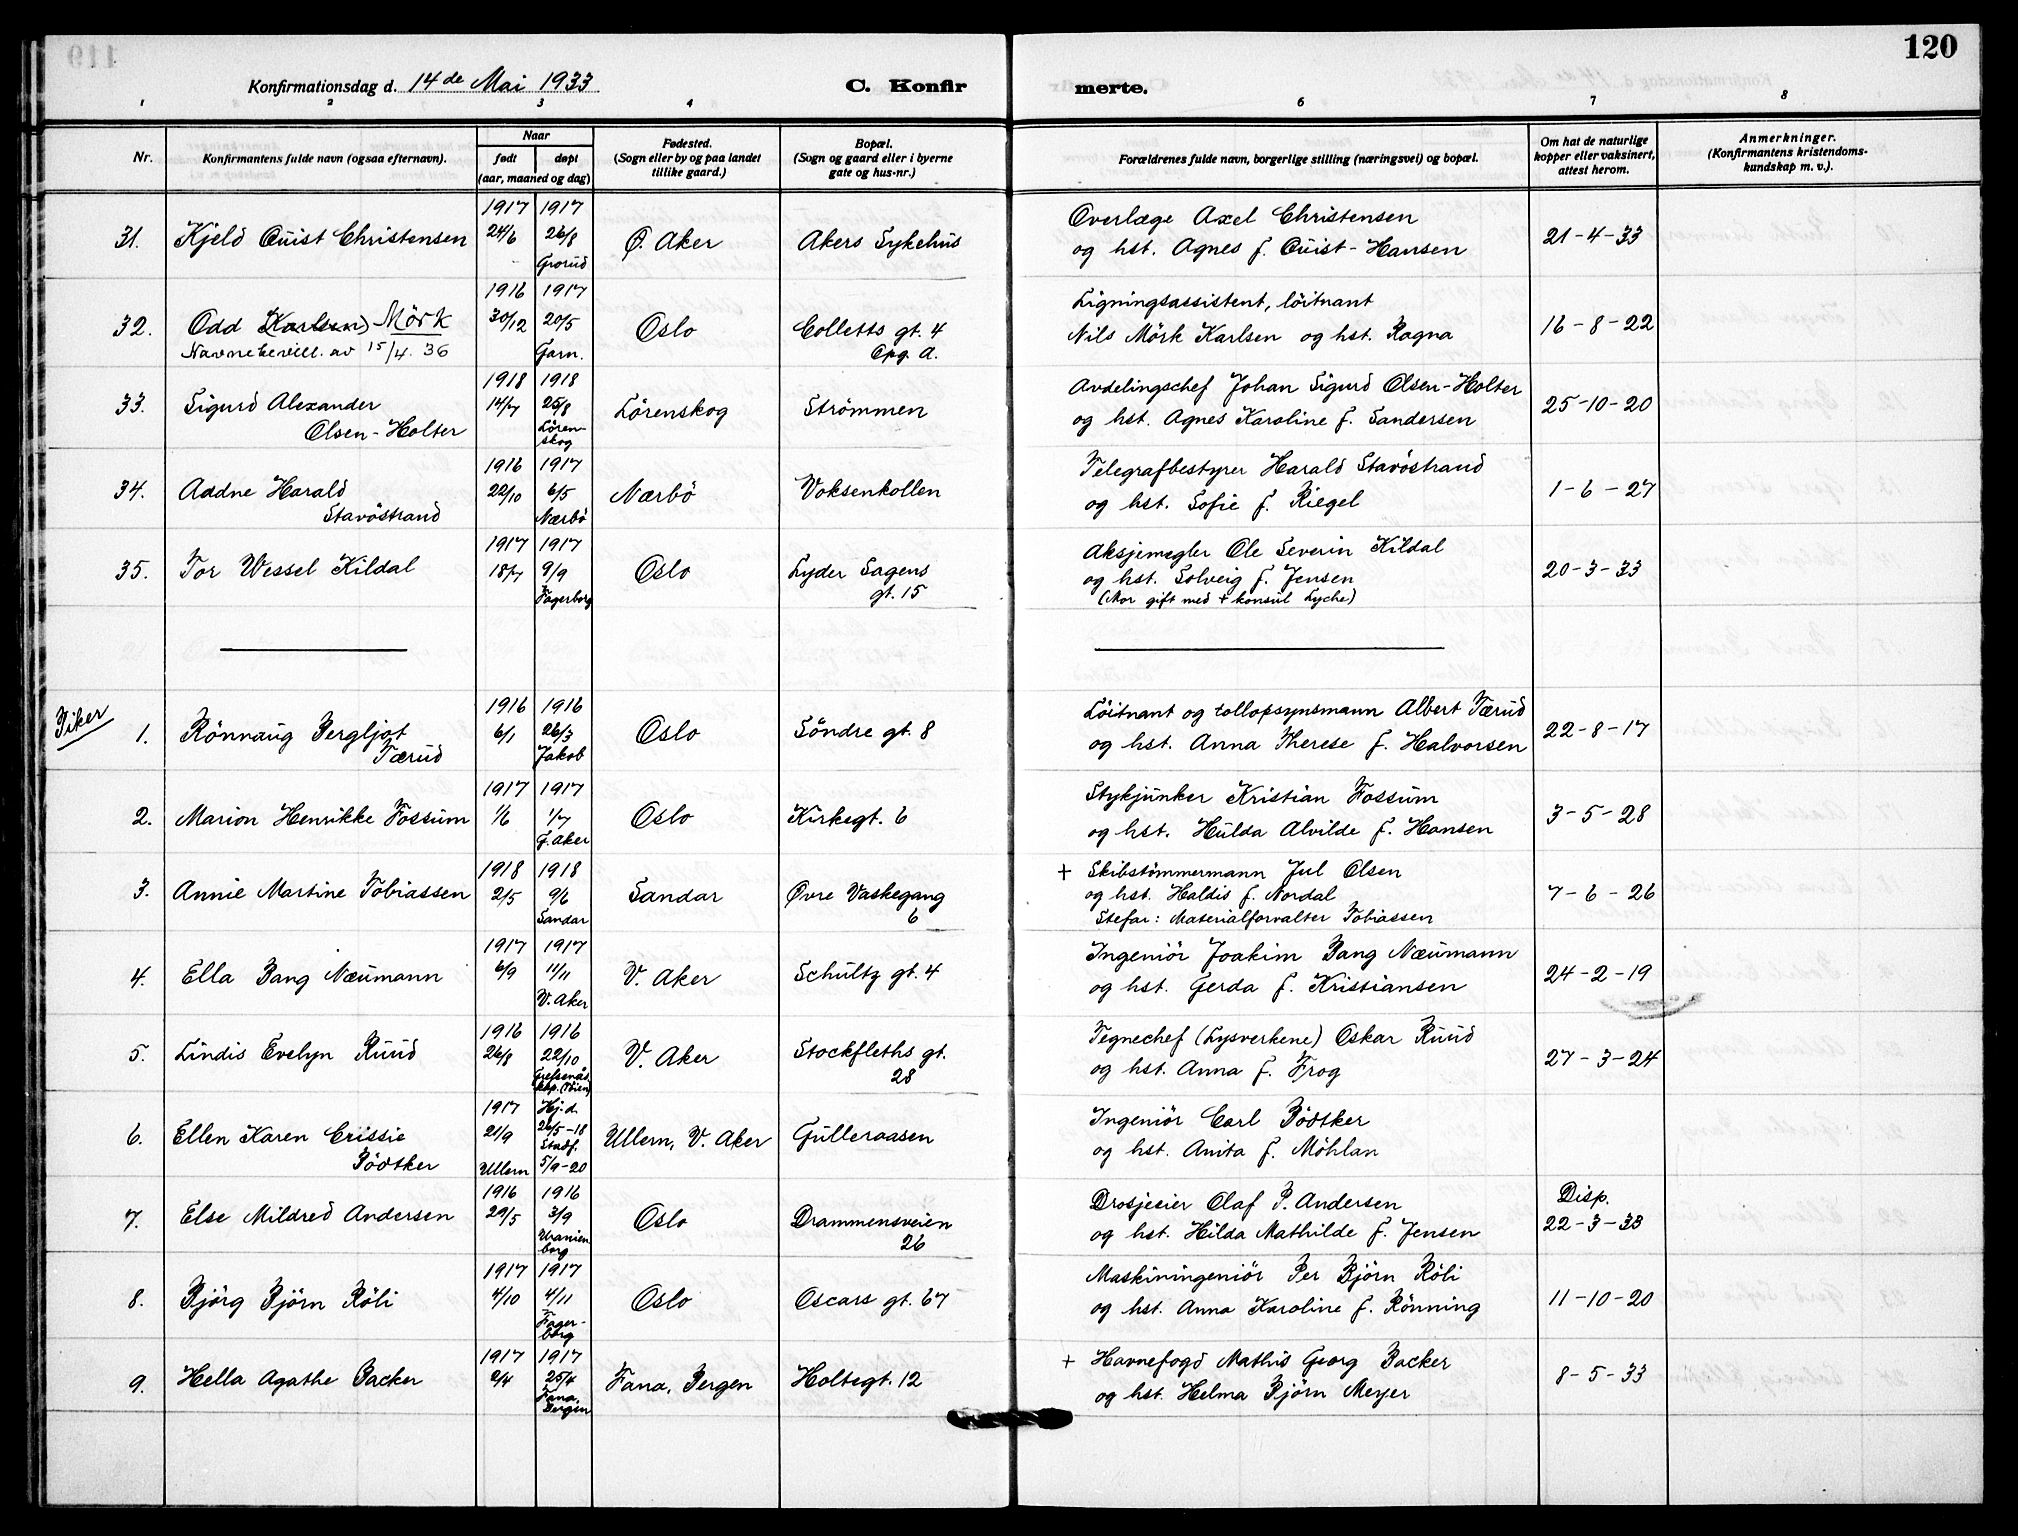 120
Konfirmationsdag d. 14de Mai 1933
C. Konfir
merte.
1 2 3 4 6 7 8
Nr.
Konfirmantens fulde navn (ogsaa efternavn).
Naar
født døpt
(aar, maaned og dag)
Fødested.
(Sogn eller by og paa landet
tillike gaard.)
Bopæl.
(Sogn og gaard eller i byerne
gate og hus-nr.)
Forældrenes fulde navn, borgerlige stilling (næringsvei) og bopæl.
Om hat de naturlige
kopper eller vaksinert,
attest herom.
Anmerkninger.
(Konfirmantens kristendoms-
kundskap m. v.).
1917 1917
31. Kjeld Quist Christensen 24/6 26/8 Ø. Aker Akers Sykehus
Grorud
Overlæge Axel Christensen
og hst. Agnes f. Quist-Hansen
21-4-33
1916 1917
32. Odd (Karlsen) Mörk 30/12 20/5 Oslo Colletts gt. 4
Navnebevill. av 15/4. 36 Garn. Opg. A.
Ligningsassistent, löitnant
Nils Mörk Karlsen og hst. Ragna
16-8-22
1918 1918
33. Sigurd Alexander 14/7 25/8 Lörenskog Strömmen
Olsen-Holter Lören-
skog
Avdelingschef Johan Sigurd Olsen-Holter
og hst. Agnes Karoline f. Sandersen
25-10-20
1916 1917
34. Addne Harald 22/10 6/5 Nærbö Voksenkollen
Stavöstrand Nærbö
Telegrafbestyrer Harald Stavöstrand
og hst. Sofie f. Riegel
1-6-27
1917 1917
35. Tor Wessel Kildal 18/7 9/9 Oslo Lyder Sagens
Fagerborg gt. 15
Aksjemegler Ole Severin Kildal
og hst. Solveig f. Jensen
(Mor gift med + konsul Lyche)
20-3-33
Piker
1916 1916
1. Rönnaug Bergljot 6/1 26/3 Oslo Söndre gt. 8
Tærud Jakob
Löitnant og tollopsynsmann Albert Tærud
og hst. Anna Therese f. Halvorsen
22-8-17
1917 1917
2. Marion Henrikke Fossum 1/6 1/7 Oslo Kirkegt. 6
G. Aker
Stykjunker Kristian Fossum
og hst. Hulda Alvilde f. Hansen
3-5-28
1918 1918
3. Annie Martine Tobiassen 2/5 9/6 Sandar Øvre Vaskegang
Sandar 6
+ Skibstömmermann Jul Olsen
og hst. Haldis f. Nordal
Stefar: Materialforvalter Tobiassen
7-6-26
1917 1917
4. Ella Bang Næumann 6/9 11/11 V. Aker Schultz gt. 4
V. Aker
Ingeniör Joakim Bang Næumann
og hst. Gerda f. Kristiansen
24-2-19
1916 1916
5. Lindis Evelyn Ruud 26/8 22/10 V. Aker Stockfleths gt.
28
Tegnechef (Lysverkene) Oskar Ruud
og hst. Anna f. Frog
27-3-24
1917 Hj.d.
26/5-18
6. Ellen Karen Crissie 21/9 Stadf. Ullern, V. Aker Gulleraasen
Bödtker Ullern 5/9-20
Ingeniör Carl Bödtker
og hst. Anita f. Möhlan
1916 1916
7. Else Mildred Andersen 29/5 3/9 Oslo Drammensveien
Uranien 26
borg
Drosjeeier Olaf P. Andersen
og hst. Hilda Mathilde f. Jensen
Disp.
22-3-33
1917 1917
8. Björg Björn Röli 4/10 4/11 Oslo Oscars gt. 67
Fager-
borg
Maskiningeniör Per Björn Röli
og hst. Anna Karoline f. Rönning
11-10-20
1917 1917
9. Hella Agathe Backer 2/4 25/4 Fana, Bergen Holtegt. 12
Fana,
Bergen
+ Havnefogd Mathis Georg Backer
og hst. Helma Björn Meyer
8-5-33